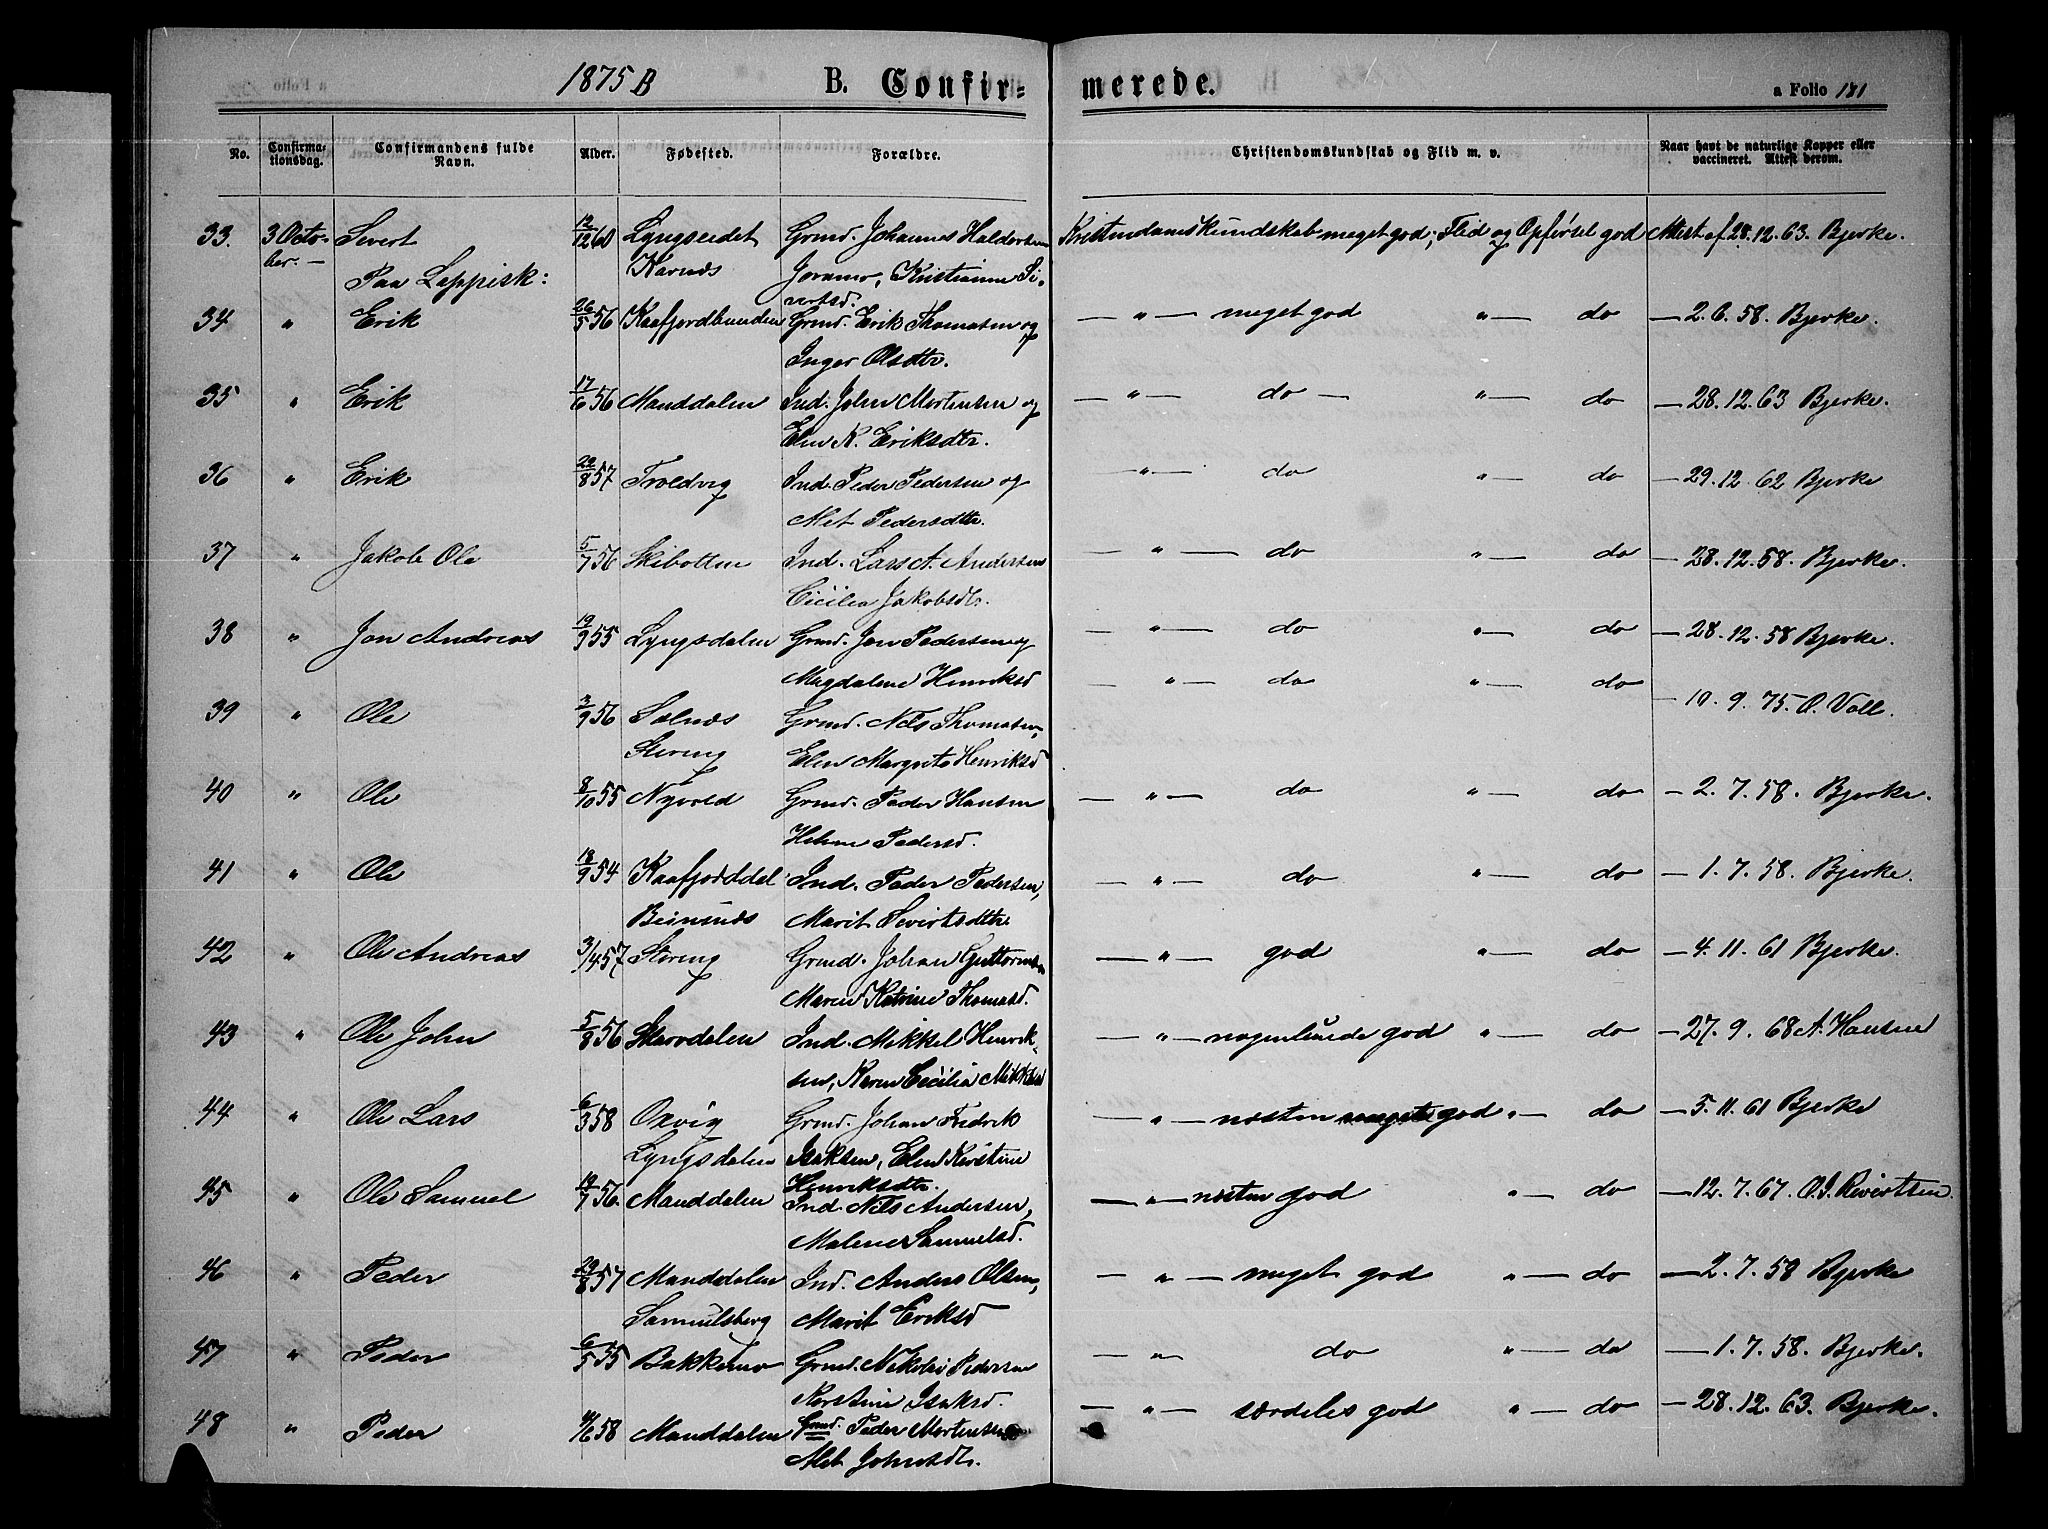 1875 B B. Confirmerede. a Folio 181
No. Confirmationsdag. Confirmandens fulde Navn. Alder. Fødested. Forældre. Christendomskundskab og Flid m. v. Naar havt de naturlige Kopper eller vaccineret. Attest derom.
33. 3 Octo- Sivert 12/12 60 Lyngseidet Grmd. Johannes Haldorsen Kristendomskundskab meget god; Flid og Opførsel god Attest af 28.12.63. Bjerke.
ber. — Karnes Kristianne Si-
Paa Lappisk: vertsd.
34 " Erik 26/5 56 Kaafjordbunden Grmd. Erik Thomasen og — " — meget god " — do — 2.6.58. Bjerke.
Inger Olsdtr.
35 " Erik 17/6 56 Manddalen Ind. John Mortensen og — " — do — " — do — 28.12.63 Bjerke.
Elen K. Eriksdtr.
36 " Erik 22/8 57 Troldvig Ind. Peder Pedersen og — " — do " — do — 29.12.62 Bjerke
Met Pedersdtr.
37 " Jakob Ole 5/7 56 Skibotten Ind. Lars A. Andersen — " — do " — do — 28.12.58. Bjerke.
Cicilia Jakobsdtr.
38 " Jon Andreas 19/9 55 Lyngsdalen Grmd. Jon Pedersen og — " — do " — do — 28.12.58 Bjerke.
Magdalene Henriksd
39 " Ole 2/9 56 Solnes Grmd. Nils Thomasen, — " — do " — do — 10.9.75. O. Voll.
Storeng Elen Margrete Henriksd
40 " Ole 8/10 55 Nyvold Grmd. Peder Hansen — " — do " — do — 2.7.58. Bjerke.
Helene Pedersd.
41 " Ole 18/9 54 Kaafjorddal Ind. Peder Pedersen, — " — do " — do — 1.7.58. Bjerke.
Marit Sivertsdtr.
42 " Ole Andreas 3/4 57 Storeng Grmd. Johan Guttormsen — " — god " — do — 4.11.61 Bjerke.
Maren Katrine Thomasd.
43 " Ole John 5/8 56 Skarvdalen Ind. Mikkel Henrik- — " — nogenlunde god " — do — 27.9.68 A. Hansen
sen, Karen Cecilia Mikkelsd
44 " Ole Lars 6/3 58 Oxvig Grmd. Johan Fredrik — " — næsten meget god " — do — 5.11.61 Bjerke
Lyngsdalen Isaksen, Elen Kirstine
Henriksdtr.
45 " Ole Samuel 19/7 56 Manddalen Ind. Nils Andersen, — " — næsten god " — do — 12.7.67. O. J. Sivertsen.
Malene Samuelsd.
46 " Peder 29/8 57 Manddalen Ind. Anders Olsen, — " — meget god " — do — 2.7.58 Bjerke
Samuelsberg Marit Eriksd
47 " Peder 6/5 55 Bakkemo Grmd. Nikolai Pedersen — " — do " — do — 1.7.58. Bjerke.
Kirstine Isaksd.
48 " Peder 4/6 58 Manddalen Grmd. Peder Mortensen — " — særdeles god " — do — 28.12.63. Bjerke.
Met Johnsdtr.